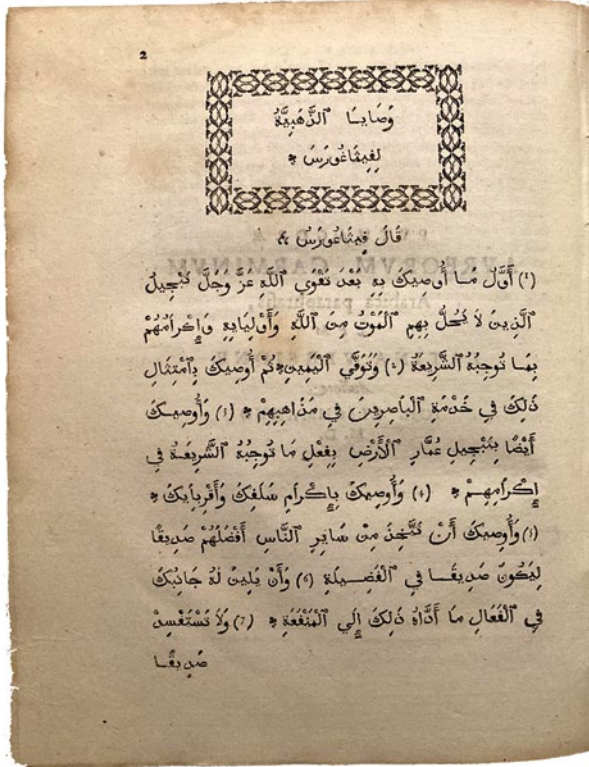 2
وَصَايَا ٱلذَّهَبِيَّةُ
لِفِيثَاغُورَسَ *
قَالَ فِيثَاغُورَسُ
(١) أَوَّلُ مَا أُوصِيكَ بِهِ بَعْدَ تَقْوَي ٱللَّهِ عَزَّ وَجَلَّ تَبْجِيلُ
ٱلَّذِينَ لَا يَحُلُّ بِهِمِ ٱلْمَوْتُ مِنَ ٱللَّهِ وَأَوْلِيَايِهِ وَإِكْرَامُهُمْ
بِمَا تُوجِبُهُ ٱلشَّرِيعَةُ (٢) وَتَوَقَّي ٱلْيَمِينِ * ثُمَّ أُوصِيكَ بِٱمْتِثَالِ
ذَلِكَ فِي خَدْمَةِ ٱلْبَاصِرِينَ فِي مَذَاهِبِهِمْ * (٣) وَأُوصِيكَ
أَيْضًا بِتَبْجِيلِ عُمَّارِ ٱلْأَرْضِ بِفِعْلِ مَا تُوجِبُهُ ٱلشَّرِيعَةُ فِي
إِكْرَامِهِمْ * (٤) وَأُوصِيكَ بِإِكْرَامِ سَلَفِكَ وَأَقْرِبَايِكَ *
(٥) وَأُوصِيكَ أَنْ تَتَّخِذَ مِنْ سَايِرِ ٱلنَّاسِ أَفْضَلَهُمْ صَدِيقًا
لِيَكُونَ صَدِيقًا فِي ٱلْفَضِيلَةِ (٦) وَأَنْ يَلِينَ لَهُ جَانِبُكَ
فِي ٱلْفَعَالِ مَا أَدَّاهُ ذَلِكَ إِلَي ٱلْمَنْفَعَةِ * (٧) وَلَا تَسْتَفْسِدْ
صَدِيقًا